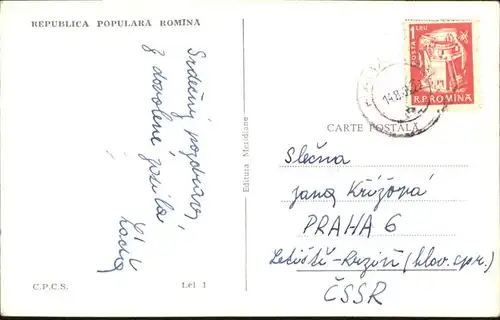 REPUBLICA POPULARA ROMÎNA
Srdečný pozdrav
z dovolené zasílá
C.P.C.S.
Lei 1
Editura Meridiane
POSTA 1 LEU
R.P. ROMINA
14.8.
CARTE POSTALĂ
Slečna
Jana Křížová
PRAHA 6
Letiště-Ruzině (hlov. cpr.)
ČSSR